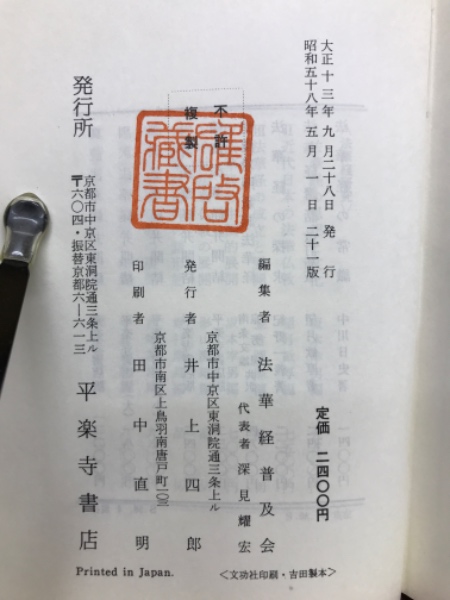 大正十三年九月二十八日 発行
昭和五十八年五月一日 二十一版
定価 二四〇〇円
不許
複製
編集者 法華経普及会
代表者 深見耀宏
京都市中京区東洞院通三条上ル
発行者 井上四郎
京都市南区上鳥羽南唐戸町一〇三
印刷者 田中直明
発行所
京都市中京区東洞院通三条上ル
〒六〇四・振替京都六―六一三
平楽寺書店
Printed in Japan.
〈文功社印刷・吉田製本〉
藏書